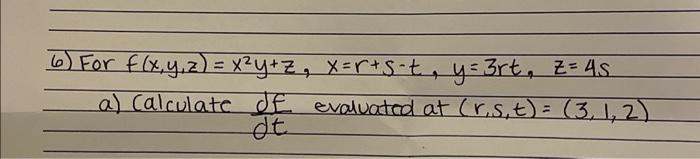 6) For f(x,y,z) = x²y+z, x=r+s-t, y=3rt, z=4s
a) Calculate df/dt evaluated at (r,s,t) = (3,1,2)